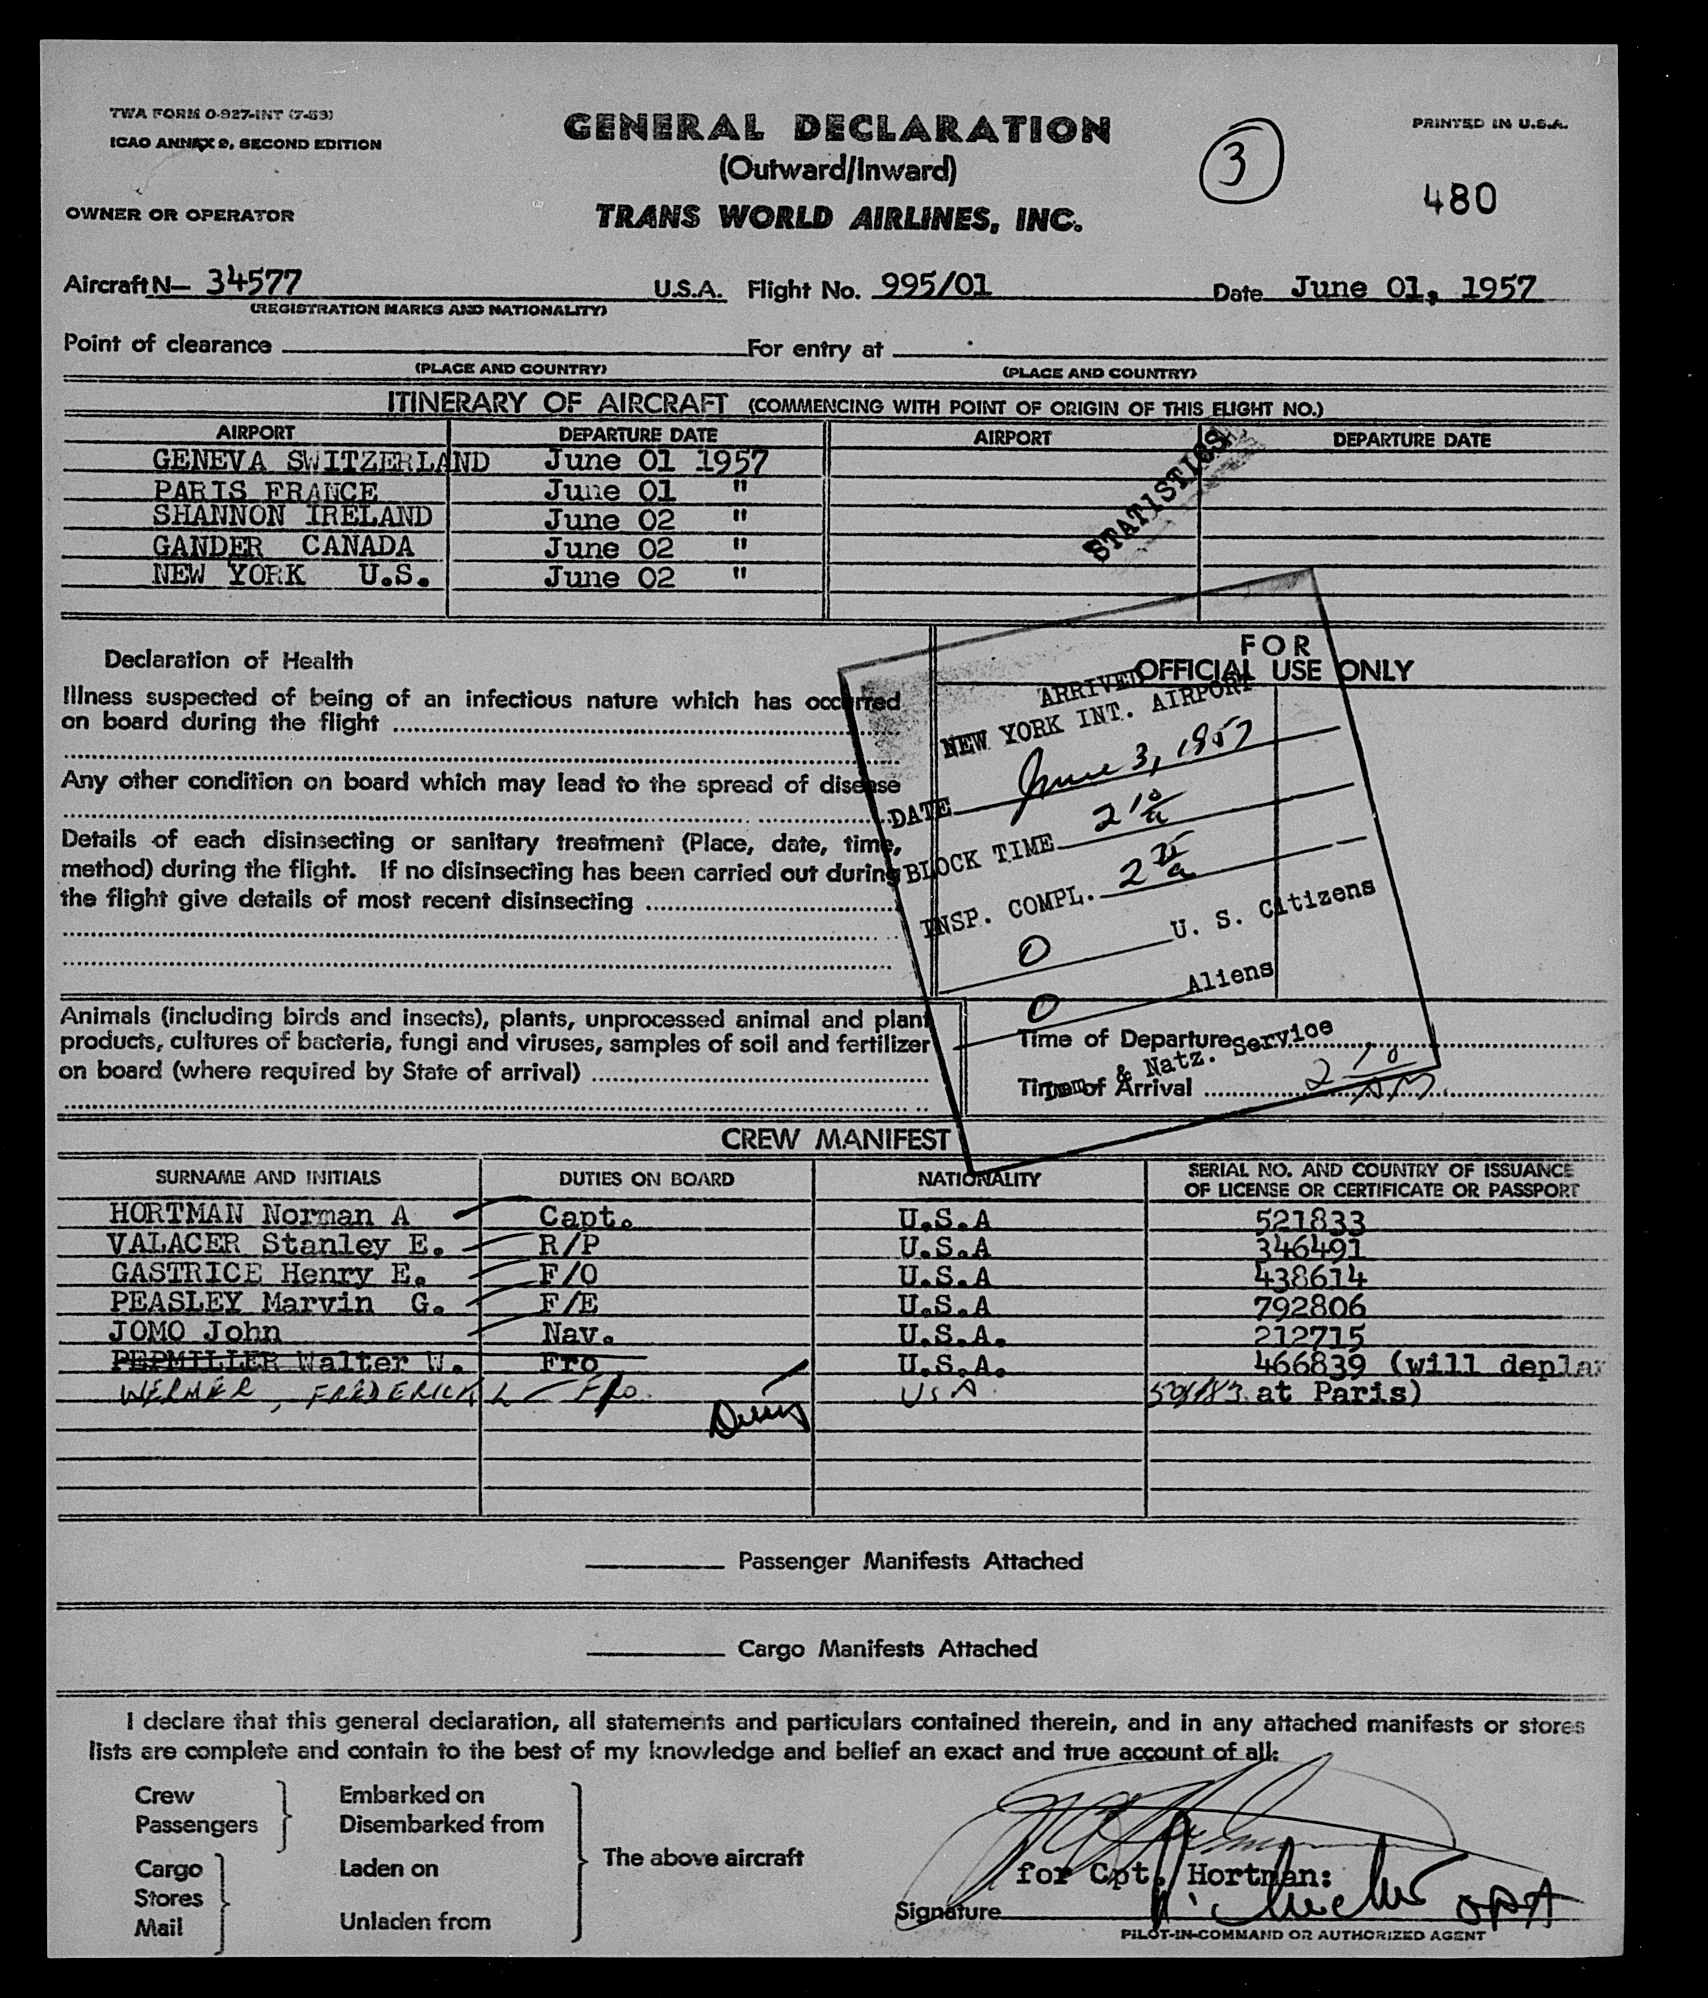 TWA FORM O-927-INT (7-53)
ICAO ANNEX 9, SECOND EDITION
GENERAL DECLARATION
(Outward/Inward)
TRANS WORLD AIRLINES, INC.
3
PRINTED IN U.S.A.
480
OWNER OR OPERATOR
Aircraft N— 34577 U.S.A. Flight No. 995/01 Date June 01, 1957
(REGISTRATION MARKS AND NATIONALITY)
Point of clearance For entry at
(PLACE AND COUNTRY) (PLACE AND COUNTRY)
ITINERARY OF AIRCRAFT (COMMENCING WITH POINT OF ORIGIN OF THIS FLIGHT NO.)
AIRPORT DEPARTURE DATE AIRPORT DEPARTURE DATE
GENEVA SWITZERLAND June 01 1957
PARIS FRANCE June 01 "
SHANNON IRELAND June 02 "
GANDER CANADA June 02 "
NEW YORK U.S. June 02 "
STATISTICS
Declaration of Health
Illness suspected of being of an infectious nature which has occurred
on board during the flight
Any other condition on board which may lead to the spread of disease
Details of each disinsecting or sanitary treatment (Place, date, time,
method) during the flight. If no disinsecting has been carried out during
the flight give details of most recent disinsecting
FOR
OFFICIAL USE ONLY
ARRIVED
NEW YORK INT. AIRPORT
DATE June 3, 1957
BLOCK TIME 2 10/a
INSP. COMPL. 2
0 U. S. Citizens
0 Aliens
Imm. & Natz. Service
Animals (including birds and insects), plants, unprocessed animal and plant
products, cultures of bacteria, fungi and viruses, samples of soil and fertilizer
on board (where required by State of arrival)
Time of Departure
Time of Arrival 2 10 AM
CREW MANIFEST
SURNAME AND INITIALS DUTIES ON BOARD NATIONALITY SERIAL NO. AND COUNTRY OF ISSUANCE
OF LICENSE OR CERTIFICATE OR PASSPORT
HORTMAN Norman A Capt. U.S.A 521833
VALACER Stanley E. R/P U.S.A 346491
GASTRICE Henry E. F/O U.S.A 438614
PEASLEY Marvin G. F/E U.S.A 792806
JOMO John Nav. U.S.A. 212715
PEPMILLER Walter W. Fro U.S.A. 466839 (will deplan
WERNER, FREDERICK L Fro. USA at Paris)
Passenger Manifests Attached
Cargo Manifests Attached
I declare that this general declaration, all statements and particulars contained therein, and in any attached manifests or stores
lists are complete and contain to the best of my knowledge and belief an exact and true account of all:
Crew
Passengers
Embarked on
Disembarked from
Cargo
Stores
Mail
Laden on
Unladen from
The above aircraft
for Cpt. Hortman:
Signature
OPA
PILOT-IN-COMMAND OR AUTHORIZED AGENT